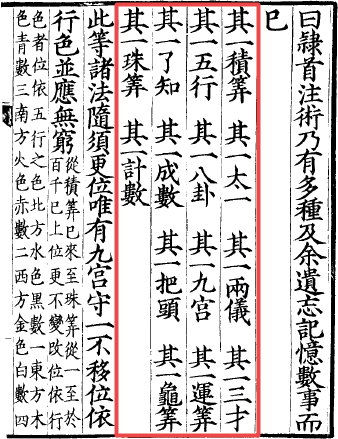 曰隷首注術乃有多種及余遺忘記憶數事而
已
其一積筭　其一太一　其一兩儀　其一三才
其一五行　其一八卦　其一九宮　其一運筭
其一了知　其一成數　其一把頭　其一龜筭
其一珠筭　其一計數
此等諸法隨須更位唯有九宮守一不移位依
行色並應無窮
從積筭已來至珠筭從一至於
百千已上位更不變改位依行
色者位依五行之色北方水色黑數一東方木
色青數三南方火色赤數二西方金色白數四